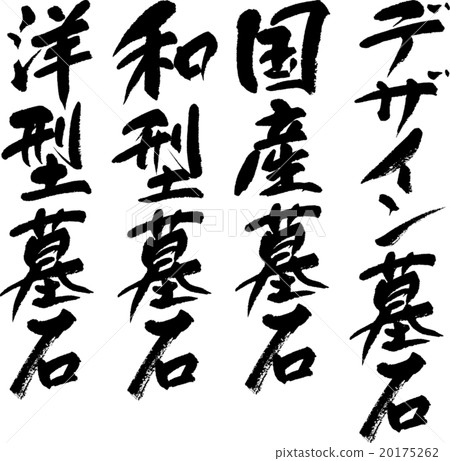 デザイン墓石
国産墓石
和型墓石
洋型墓石
20175262